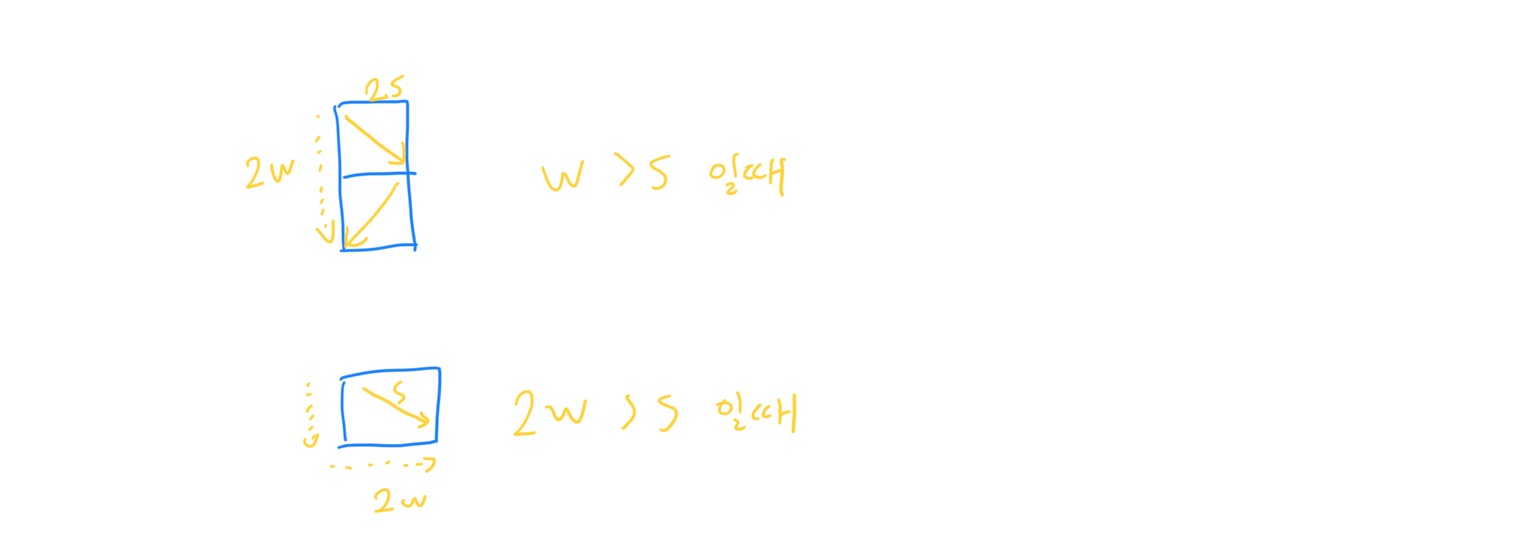 2s
2w
w > s 일때
s
2w > s 일때
2w